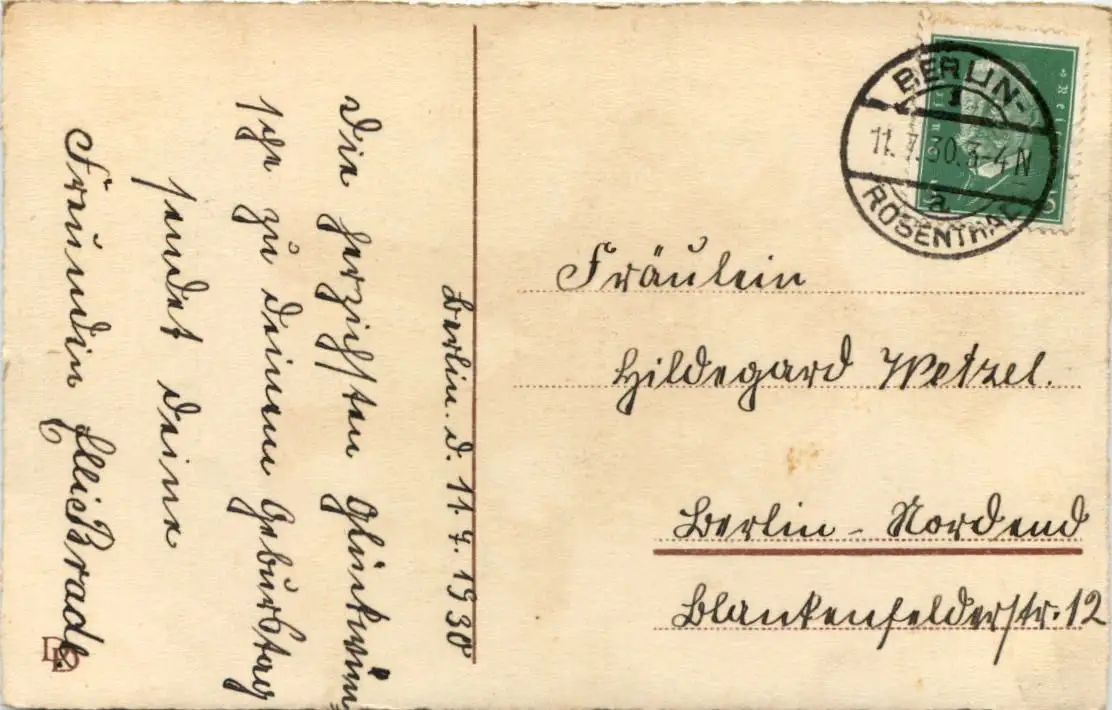 Berlin. d. 11.7.1930
Die herzichsten Glückwün-
sche zu deinem Geburtstag
sendet deine
Freundin
BERLIN-
1
11.7.30.3-4N
a
ROSENTHAL
Fräulein
Hildegard Wetzel.
Berlin-Nordend
Blankenfelderstr. 12